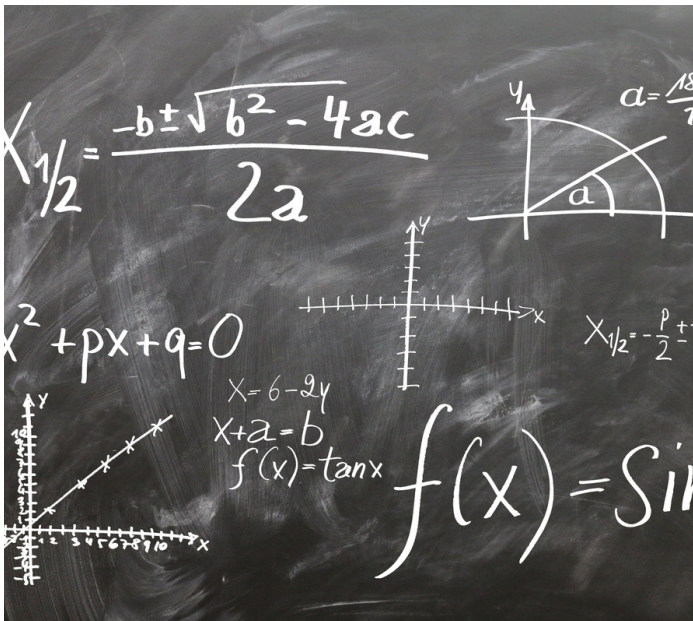 X₁/₂ = (-b ± √(b² - 4ac)) / 2a
y
a
a = 18
y
x
x² + px + q = 0
X₁/₂ = - p/2 ±
x = 6 - 2y
x + a = b
f(x) = tan x
f(x) = Sin
y
1 2 3 4 5 6 7 8 9 10 x